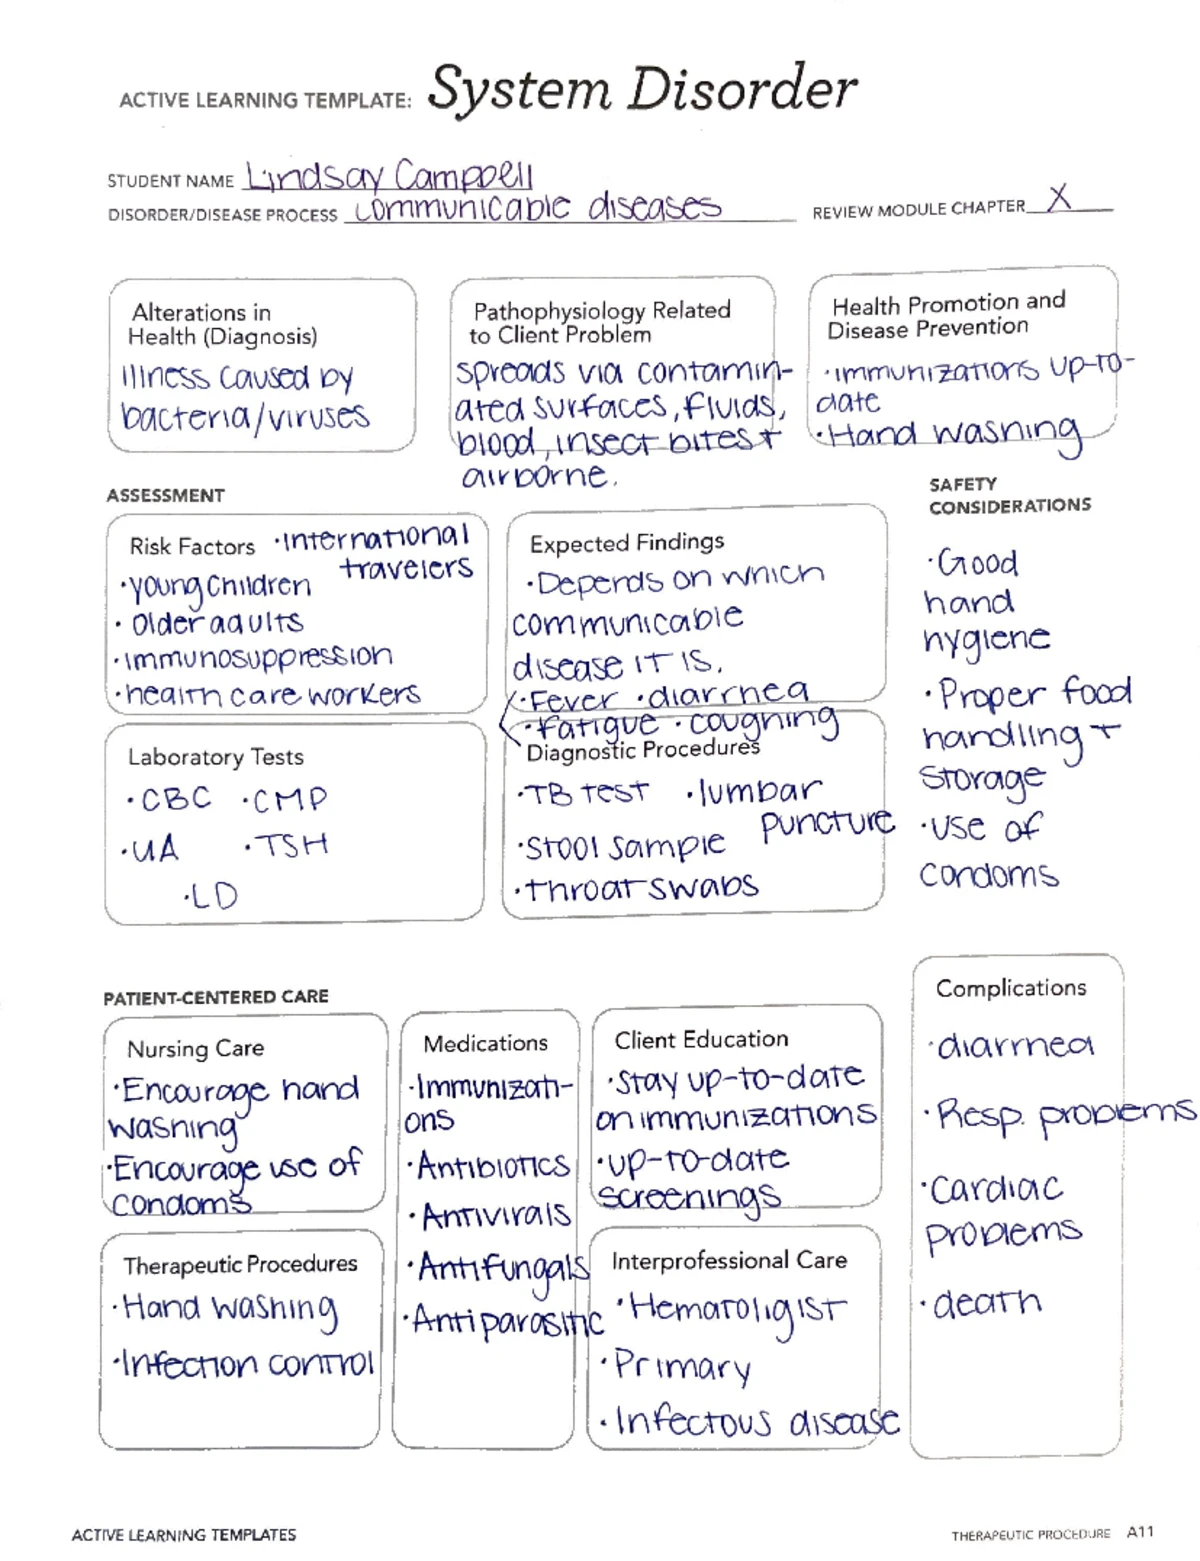 ACTIVE LEARNING TEMPLATE: System Disorder
STUDENT NAME Lindsay Campbell
DISORDER/DISEASE PROCESS communicable diseases
REVIEW MODULE CHAPTER X
Alterations in
Health (Diagnosis)
illness caused by
bacteria/viruses
Pathophysiology Related
to Client Problem
spreads via contamin-
ated surfaces, fluids,
blood, insect bites +
airborne.
Health Promotion and
Disease Prevention
·immunizations up-to-
date
·Hand washing
ASSESSMENT
Risk Factors ·international
travelers
·young children
·older adults
·immunosuppression
·health care workers
Expected Findings
·Depends on which
communicable
disease it is.
·Fever ·diarrhea
·fatigue ·coughing
SAFETY
CONSIDERATIONS
·Good
hand
hygiene
·Proper food
handling +
storage
·use of
condoms
Laboratory Tests
·CBC ·CMP
·UA ·TSH
·LD
Diagnostic Procedures
·TB test ·lumbar
puncture
·Stool sample
·throat swabs
PATIENT-CENTERED CARE
Nursing Care
·Encourage hand
washing
·Encourage use of
condoms
Medications
·Immunizati-
ons
·Antibiotics
·Antivirals
·Antifungals
·Antiparasitic
Client Education
·Stay up-to-date
on immunizations
·up-to-date
screenings
Complications
·diarrhea
·Resp. problems
·Cardiac
problems
·death
Therapeutic Procedures
·Hand washing
·Infection control
Interprofessional Care
·Hematoligist
·Primary
·Infectous disease
ACTIVE LEARNING TEMPLATES
THERAPEUTIC PROCEDURE A11